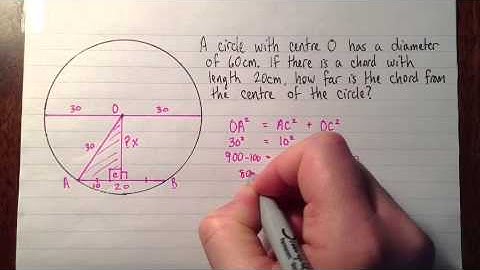 A circle with centre O has a diameter
of 60cm. If there is a chord with
length 20cm, how far is the chord from
the centre of the circle?
30 O 30
30 Px
A 10 C 20 B
OA² = AC² + OC²
30² = 10²
900-100 =
80